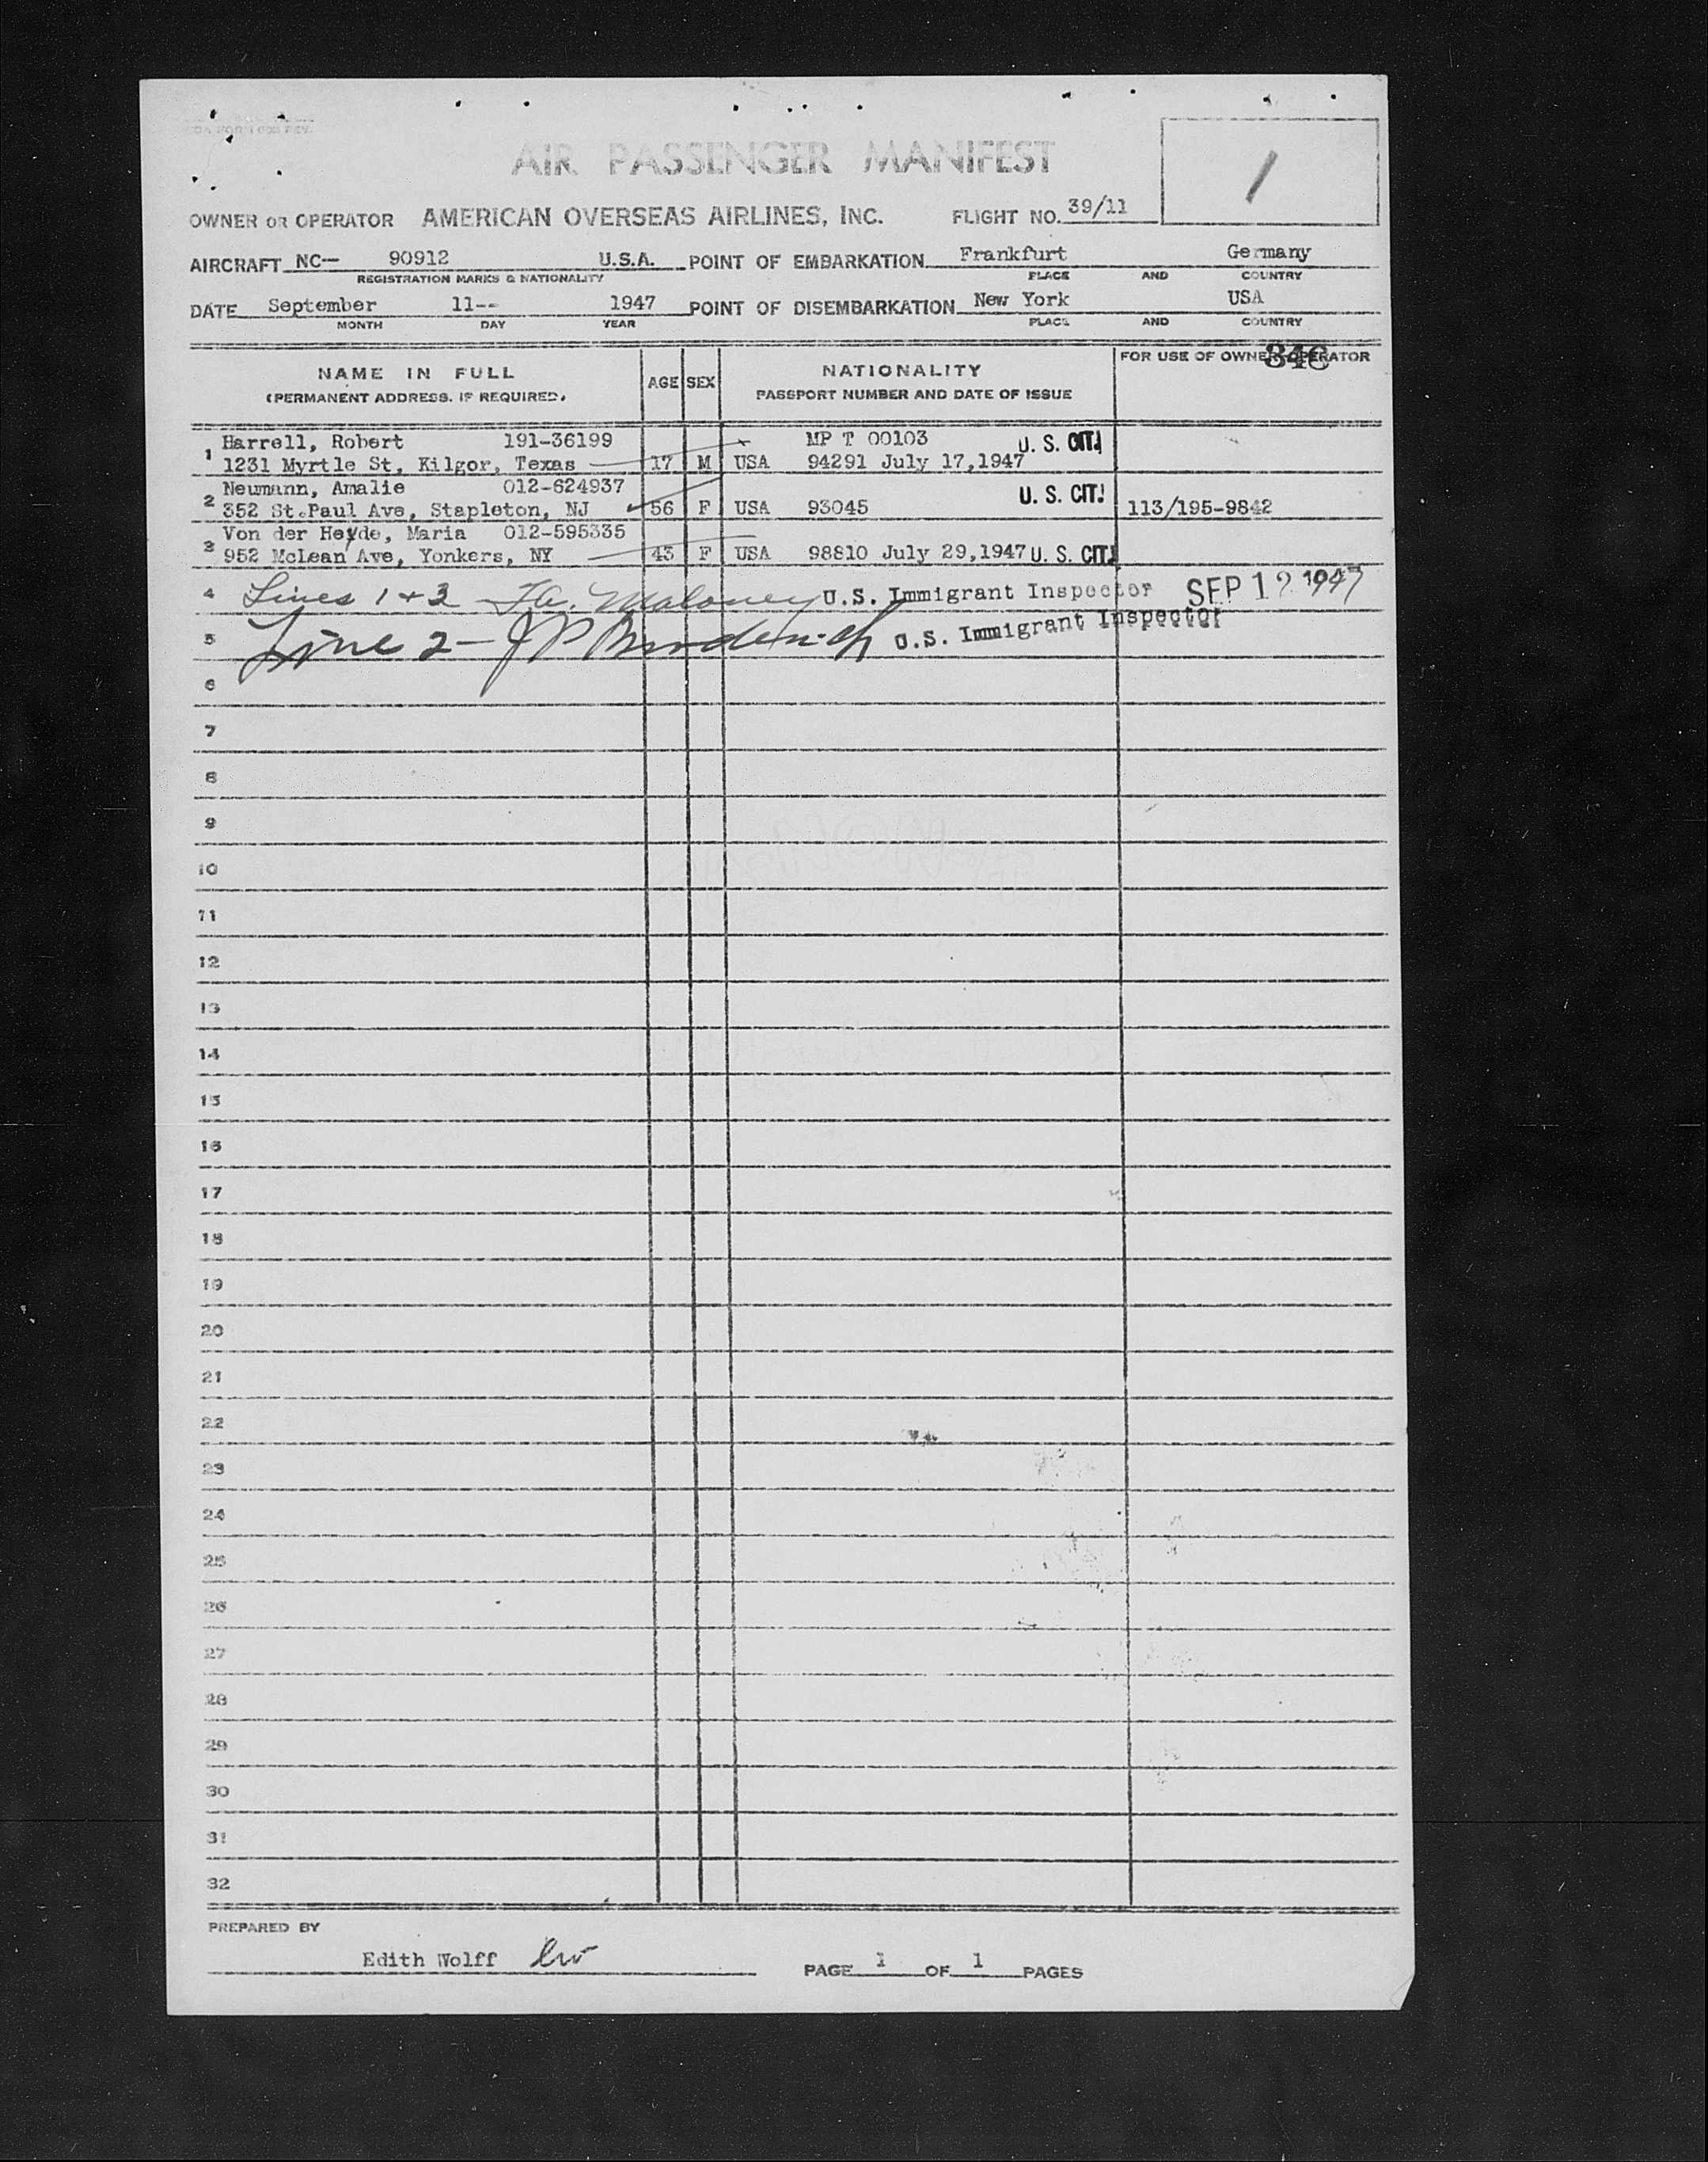 AIR PASSENGER MANIFEST
1
OWNER OR OPERATOR AMERICAN OVERSEAS AIRLINES, INC. FLIGHT NO. 39/11
AIRCRAFT NC-- 90912 U.S.A. POINT OF EMBARKATION Frankfurt Germany
REGISTRATION MARKS & NATIONALITY PLACE AND COUNTRY
DATE September 11-- 1947 POINT OF DISEMBARKATION New York USA
MONTH DAY YEAR PLACE AND COUNTRY
NAME IN FULL
(PERMANENT ADDRESS. IF REQUIRED.
AGE SEX
NATIONALITY
PASSPORT NUMBER AND DATE OF ISSUE
FOR USE OF OWNER OPERATOR
346
1 Harrell, Robert 191-36199 MP T 00103 U. S. CIT.
1231 Myrtle St, Kilgor, Texas 17 M USA 94291 July 17,1947
2 Neumann, Amalie 012-624937 U. S. CIT.
352 St.Paul Ave, Stapleton, NJ 56 F USA 93045 113/195-9842
3 Von der Heyde, Maria 012-595335
952 McLean Ave, Yonkers, NY 43 F USA 98810 July 29,1947 U. S. CIT.
4 Lines 1 + 3 Maloney U.S. Immigrant Inspector SEP 12 1947
5 Line 2 - U.S. Immigrant Inspector
6
7
8
9
10
11
12
13
14
15
16
17
18
19
20
21
22
23
24
25
26
27
28
29
30
31
32
PREPARED BY
Edith Wolff ew
PAGE 1 OF 1 PAGES